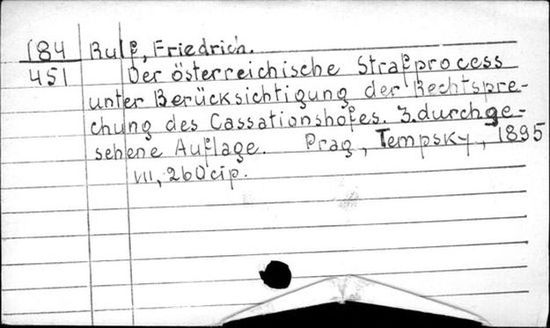 184 Rulf, Friedrich.
451 Der österreichische Strafprocess
unter Berücksichtigung der Rechtspre-
chung des Cassationshofes. 3. durchge-
sehene Auflage. Prag, Tempsky, 1895
VIII, 260 стр.